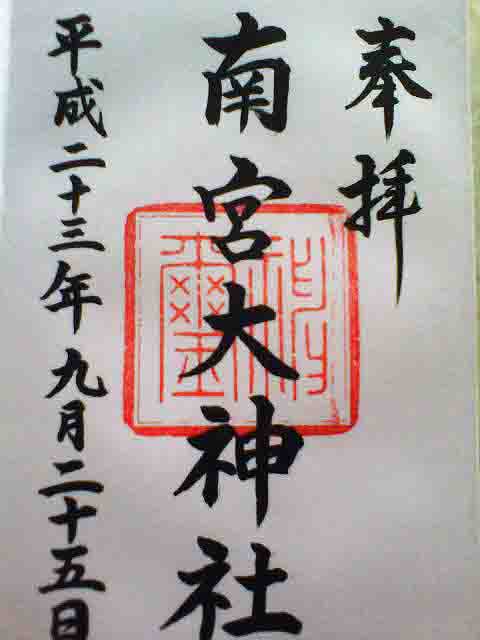 奉拝
南宮大神社
平成二十三年九月二十五日